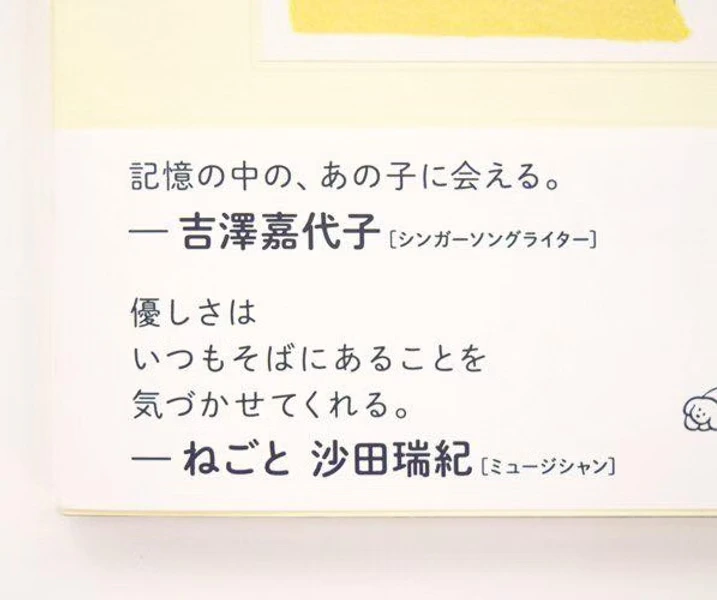 記憶の中の、あの子に会える。
― 吉澤嘉代子 [シンガーソングライター]
優しさは
いつもそばにあることを
気づかせてくれる。
― ねごと 沙田瑞紀 [ミュージシャン]